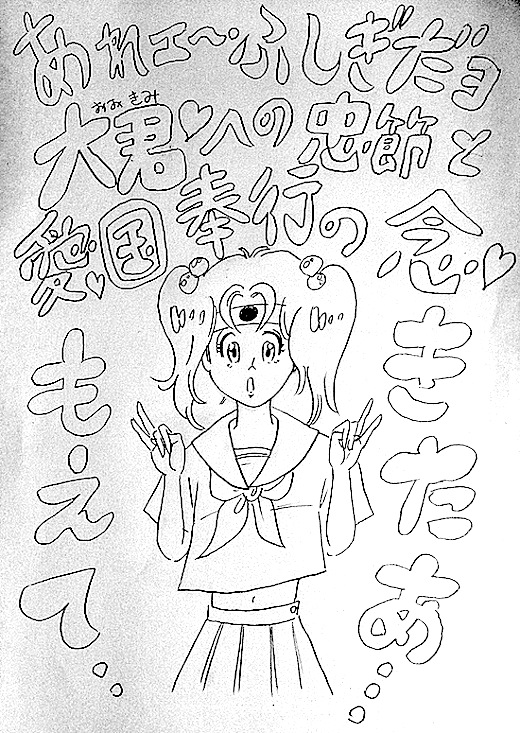 あれェ〜ふしぎだョ
おおきみ
大君♡への忠節と
愛♡国奉行の念♡
もえて・・
きたあ・・